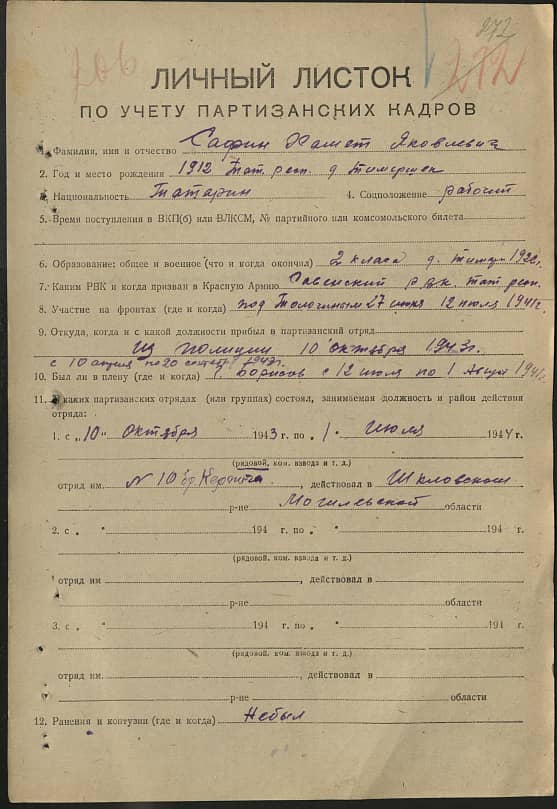 272
266 272
ЛИЧНЫЙ ЛИСТОК
ПО УЧЕТУ ПАРТИЗАНСКИХ КАДРОВ
1. Фамилия, имя и отчество Сафин Хамет Яковлевич
2. Год и место рождения 1912 Тат. респ. д.
3. Национальность Татарин 4. Соцположение рабочий
5. Время поступления в ВКП(б) или ВЛКСМ, № партийного или комсомольского билета
6. Образование: общее и военное (что и когда окончил) 2 класса д.
7. Каким РВК и когда призван в Красную Армию Тат. респ.
8. Участие на фронтах (где и когда) под Толочиным 27 июня 12 июля 1941 г.
9. Откуда, когда и с какой должности прибыл в партизанский отряд
из полиции 10 октября 1943 г.
с 10 апреля по 20 1943 г.
10. Был ли в плену (где и когда) г. Борисов с 12 июля по 1 Август 1941 г.
11. В каких партизанских отрядах (или группах) состоял, занимаемая должность и район действия
отряда:
1. с „10" октября 1943 г. по „1" июля 1944 г.
(рядовой, ком. взвода и т. д.)
отряд им. N 10 бр. , действовал в Шкловском
р-не Могилевской области
2. с „ " 194 г. по „ " 194 г.
(рядовой, ком. взвода и т. д.)
отряд им , действовал в
р-не области
3. с „ " 194 г. по „ " 194 г.
(рядовой, ком. взвода и т. д.)
отряд им. , действовал в
р-не области
12. Ранения и контузии (где и когда) Небыл